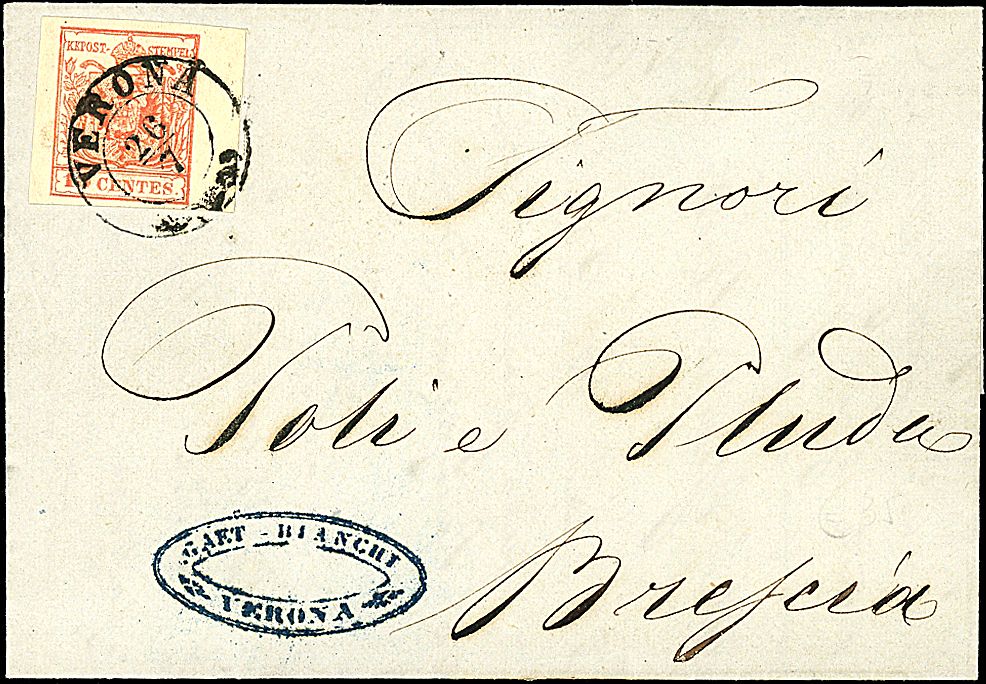 KKPOST-STEMPEL
VERONA
26/7
15 CENTES.
Signori
Poli e Pluda
Brescia
GAET-BIANCHI
VERONA